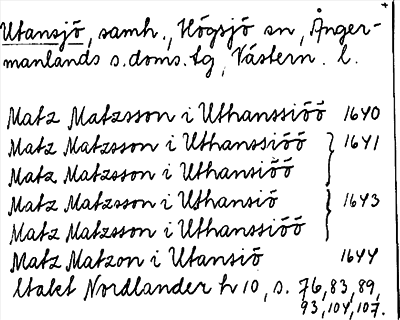 Utansjö, samh., Högsjö sn, Ånger-
manlands s.doms.tg, Västern. l.
Matz Matzsson i Uthanssiöö 1640
Matz Matzsson i Uthanssiöö } 1641
Matz Matzsson i Uthanssiöö
Matz Matzsson i Uthansiö } 1643
Matz Matzsson i Uthanssiöö
Matz Matzon i Utansiö 1644
Utakt Nordlander h 10, s. 76, 83, 89,
93, 104, 107.